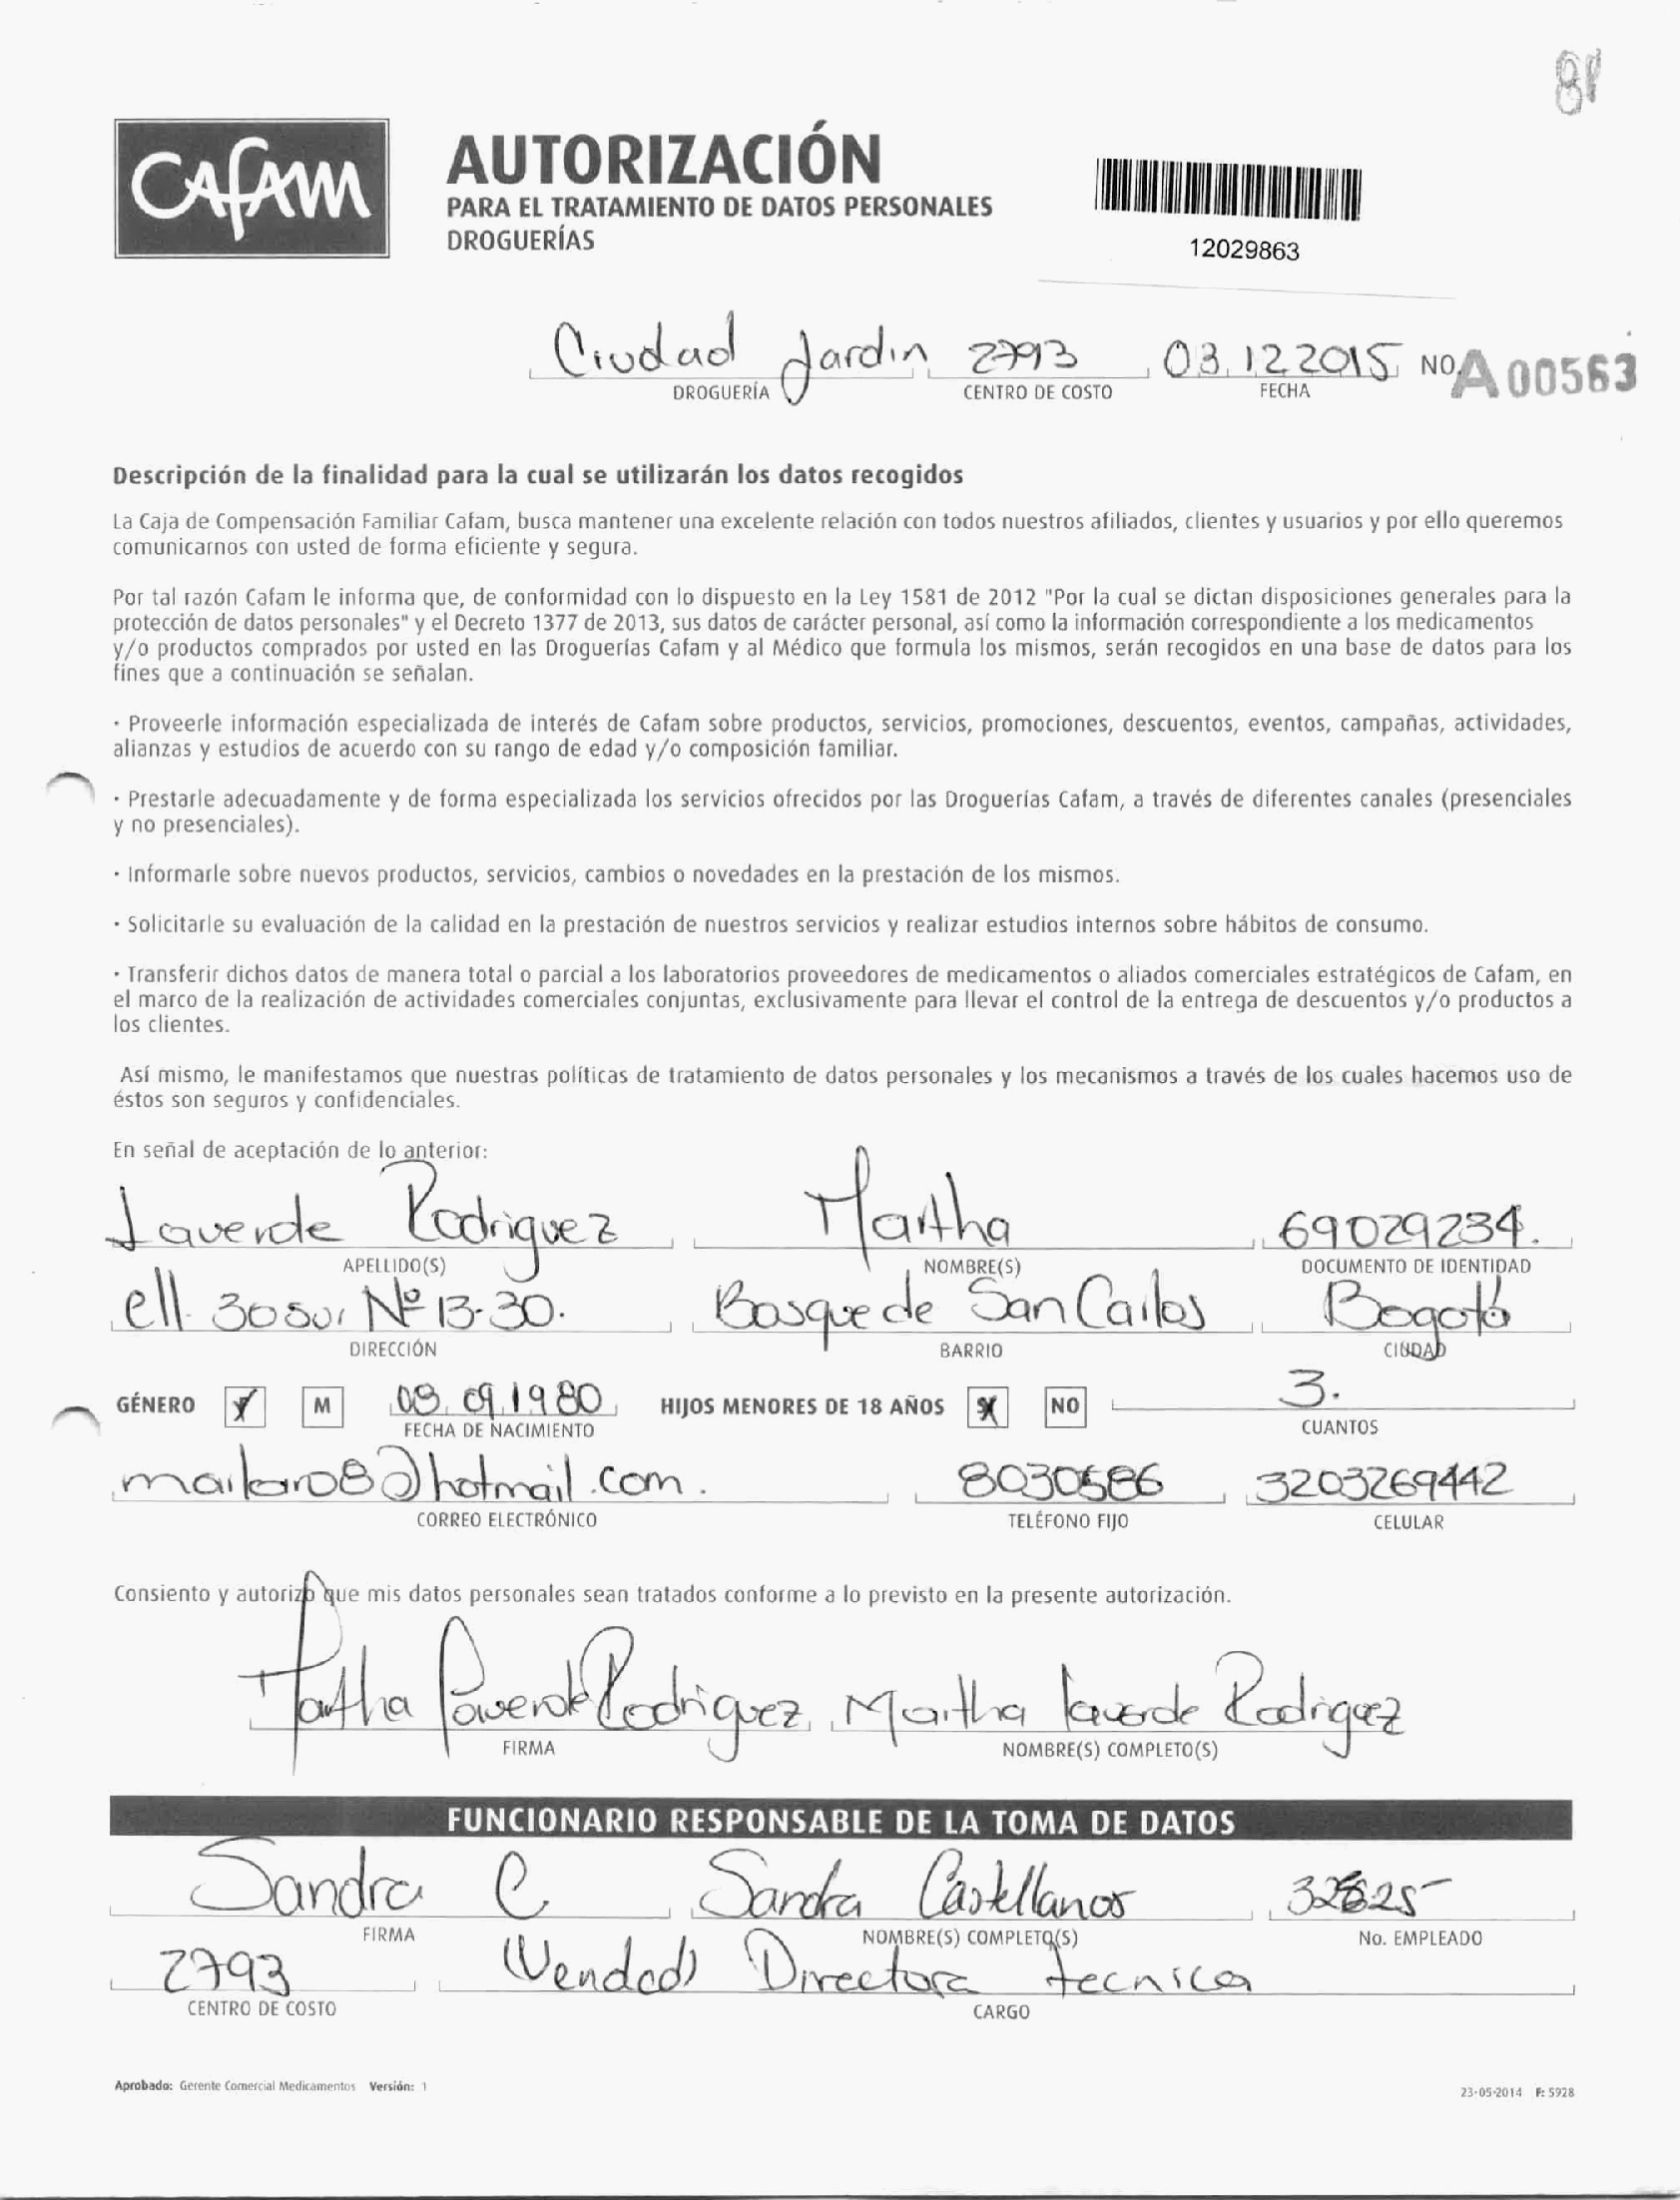 81
CAFAM
AUTORIZACIÓN
PARA EL TRATAMIENTO DE DATOS PERSONALES
DROGUERÍAS
12029863
Ciudad Jardin 2793 03.12.2015 NO. A 00563
DROGUERÍA CENTRO DE COSTO FECHA
Descripción de la finalidad para la cual se utilizarán los datos recogidos
La Caja de Compensación Familiar Cafam, busca mantener una excelente relación con todos nuestros afiliados, clientes y usuarios y por ello queremos
comunicarnos con usted de forma eficiente y segura.
Por tal razón Cafam le informa que, de conformidad con lo dispuesto en la Ley 1581 de 2012 "Por la cual se dictan disposiciones generales para la
protección de datos personales" y el Decreto 1377 de 2013, sus datos de carácter personal, así como la información correspondiente a los medicamentos
y/o productos comprados por usted en las Droguerías Cafam y al Médico que formula los mismos, serán recogidos en una base de datos para los
fines que a continuación se señalan.
· Proveerle información especializada de interés de Cafam sobre productos, servicios, promociones, descuentos, eventos, campañas, actividades,
alianzas y estudios de acuerdo con su rango de edad y/o composición familiar.
· Prestarle adecuadamente y de forma especializada los servicios ofrecidos por las Droguerías Cafam, a través de diferentes canales (presenciales
y no presenciales).
· Informarle sobre nuevos productos, servicios, cambios o novedades en la prestación de los mismos.
· Solicitarle su evaluación de la calidad en la prestación de nuestros servicios y realizar estudios internos sobre hábitos de consumo.
· Transferir dichos datos de manera total o parcial a los laboratorios proveedores de medicamentos o aliados comerciales estratégicos de Cafam, en
el marco de la realización de actividades comerciales conjuntas, exclusivamente para llevar el control de la entrega de descuentos y/o productos a
los clientes.
Así mismo, le manifestamos que nuestras políticas de tratamiento de datos personales y los mecanismos a través de los cuales hacemos uso de
éstos son seguros y confidenciales.
En señal de aceptación de lo anterior:
Laverde Rodriguez Martha 69029234.
APELLIDO(S) NOMBRE(S) DOCUMENTO DE IDENTIDAD
cll. 30 sur Nº 13-30. Bosque de San Carlos Bogotá
DIRECCIÓN BARRIO CIUDAD
GÉNERO M 08.09.1980 HIJOS MENORES DE 18 AÑOS NO 3.
FECHA DE NACIMIENTO CUANTOS
@hotmail.com. 8030586 3203269442
CORREO ELECTRÓNICO TELÉFONO FIJO CELULAR
Consiento y autorizo que mis datos personales sean tratados conforme a lo previsto en la presente autorización.
Martha Laverde Rodriguez Martha Laverde Rodriguez
FIRMA NOMBRE(S) COMPLETO(S)
FUNCIONARIO RESPONSABLE DE LA TOMA DE DATOS
Sandra C Sandra Castellanos
FIRMA NOMBRE(S) COMPLETO(S) No. EMPLEADO
2793 (Vended) Directora tecnica
CENTRO DE COSTO CARGO
Aprobado: Gerente Comercial Medicamentos Versión: 1
23-05-2014 F: 5928